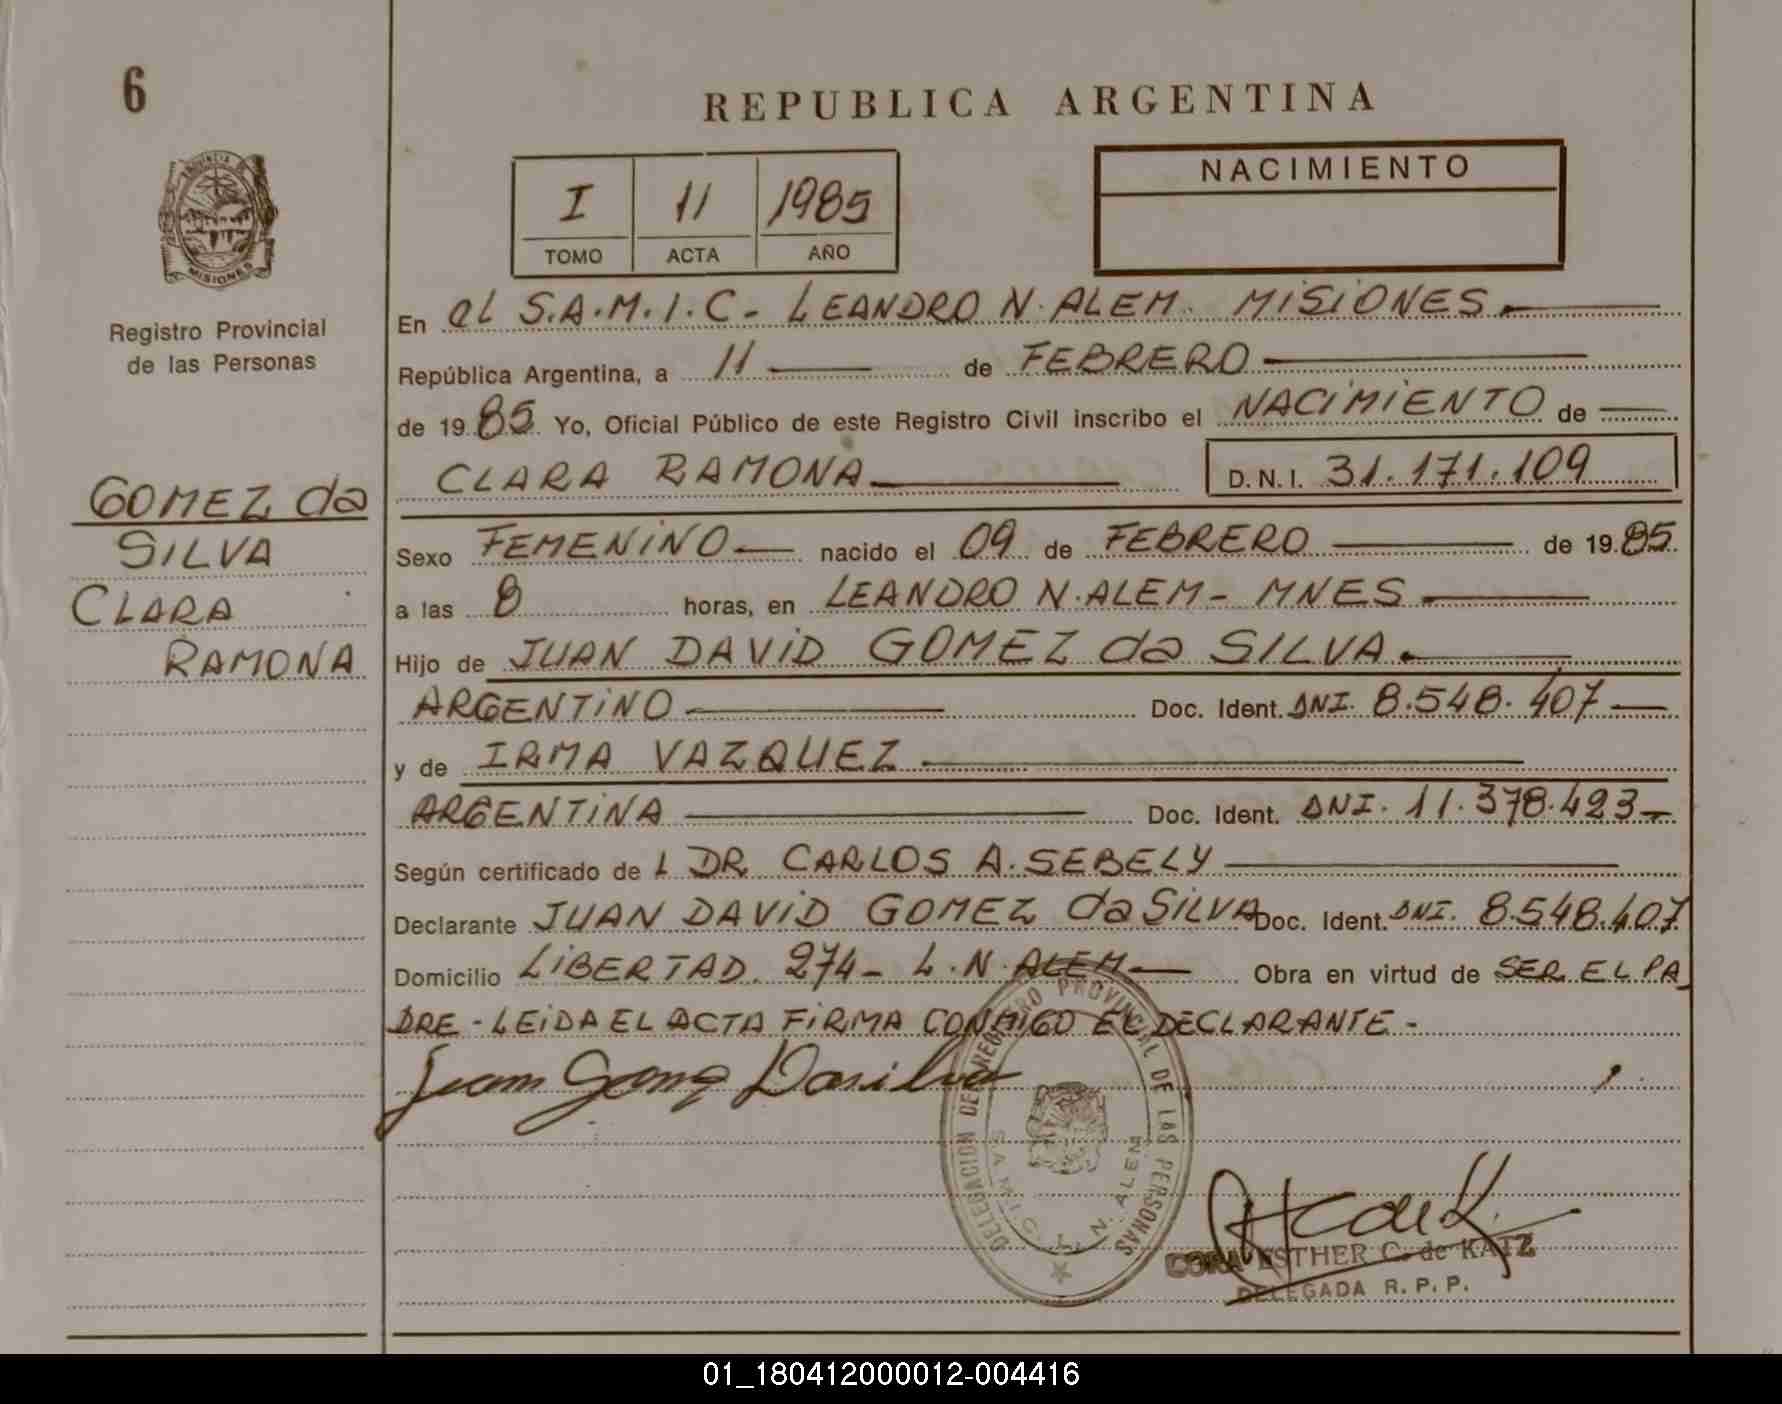 6
REPUBLICA ARGENTINA
NACIMIENTO
I 11 1985
TOMO ACTA AÑO
MISIONES
Registro Provincial
de las Personas
GOMEZ da
SILVA
CLARA
RAMONA
En el S.A.M.I.C- LEANDRO N. ALEM. MISIONES
República Argentina, a 11 de FEBRERO
de 1985. Yo, Oficial Público de este Registro Civil inscribo el NACIMIENTO de
CLARA RAMONA D.N.I. 31.171.109
Sexo FEMENINO nacido el 09 de FEBRERO de 1985
a las 8 horas, en LEANDRO N. ALEM- MNES
Hijo de JUAN DAVID GOMEZ da SILVA
ARGENTINO Doc. Ident. DNI. 8.548.407
y de IRMA VAZQUEZ
ARGENTINA Doc. Ident. DNI. 11.378.423
Según certificado de L DR CARLOS A. SEBELY
Declarante JUAN DAVID GOMEZ da SILVA Doc. Ident. DNI. 8.548.407
Domicilio LIBERTAD. 274- L.N. ALEM Obra en virtud de SER EL PA
DRE - LEIDA EL ACTA FIRMA CONMIGO EL DECLARANTE -
Juan Gomez Dasilva
DELEGACION DEL REGISTRO PROVINCIAL DE LAS PERSONAS
SAMIC. L. N. ALEM
CORA ESTHER C. de KATZ
DELEGADA R. P. P.
01_180412000012-004416